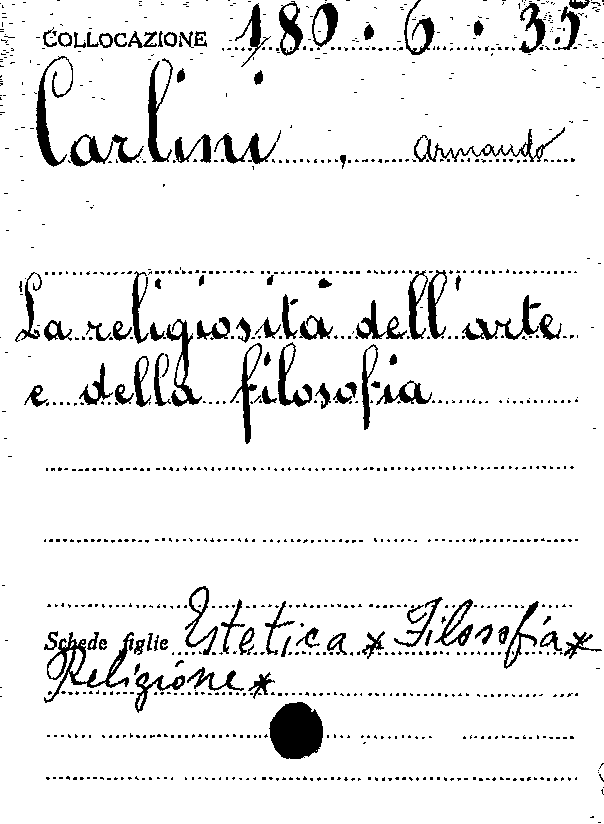 COLLOCAZIONE 180.6.35
Carlini, Armando
La religiosità dell'arte
e della filosofia
Schede figlie Estetica * Filosofia *
Religione *